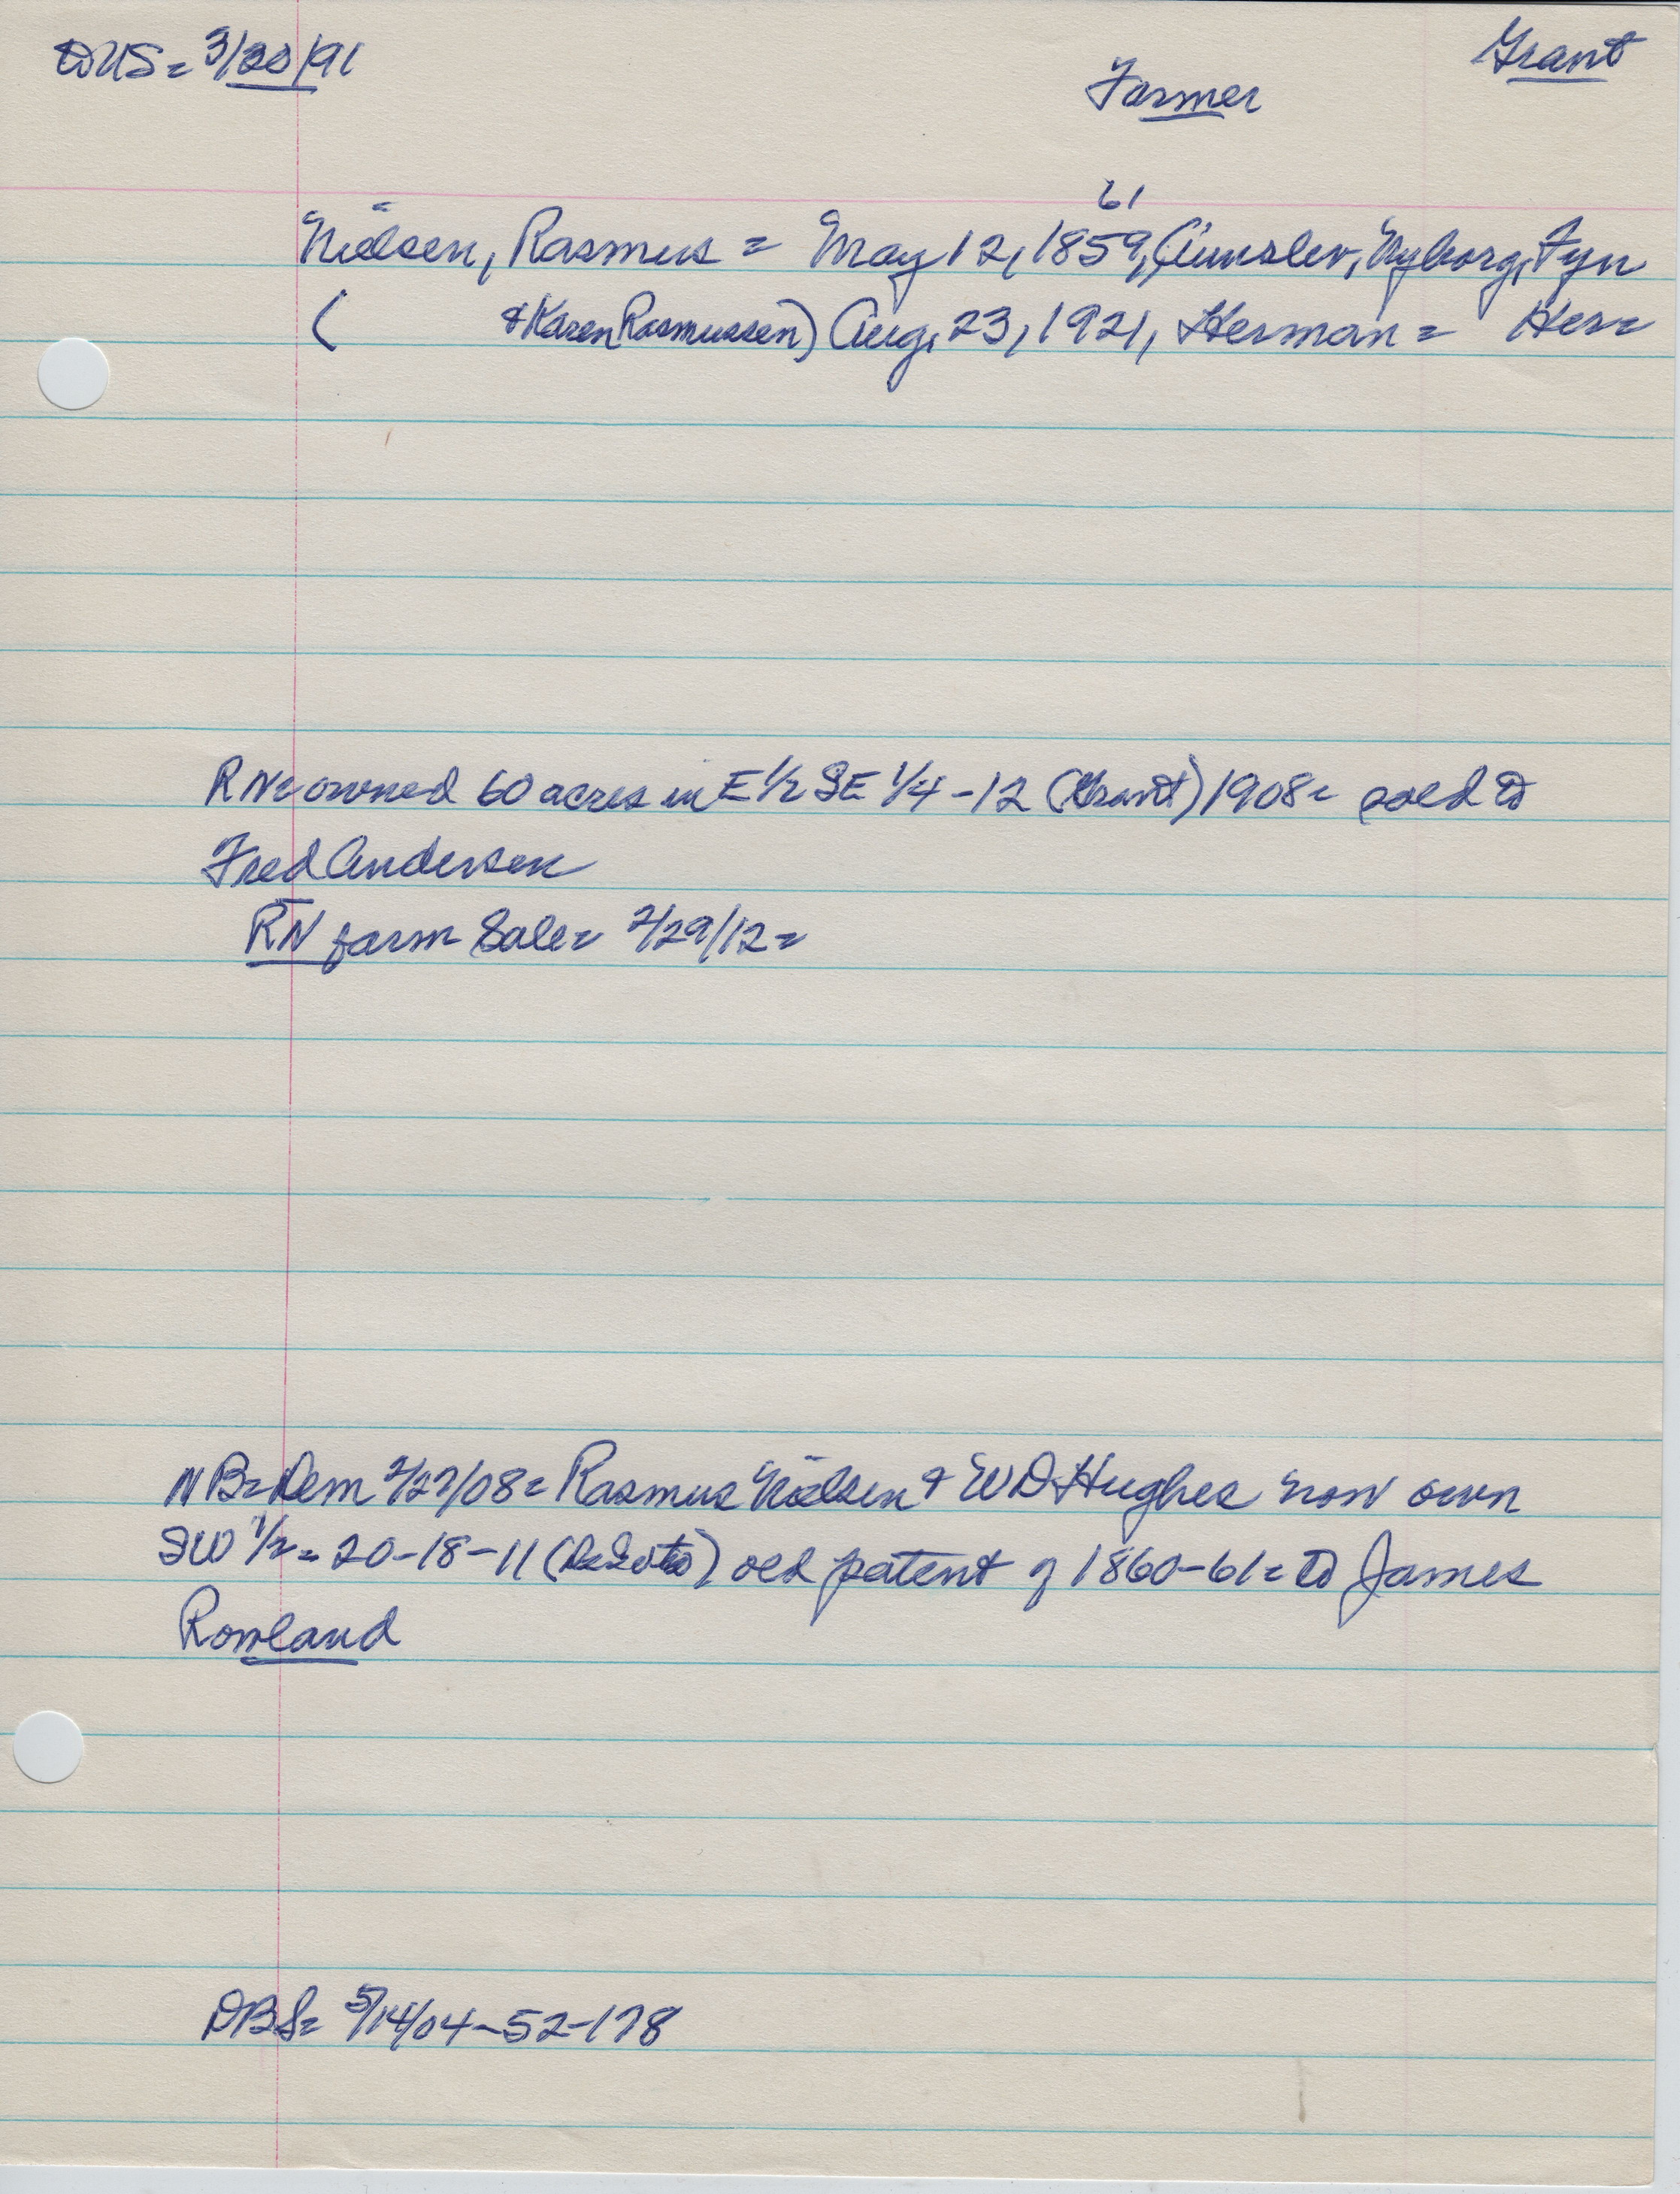 to US = 3/20/91
Grant
Farmer
61
Nielsen, Rasmus = May 12, 1859, Aunslev, Nyborg, Fyn
( & Karen Rasmussen) Aug. 23, 1921, Herman = Her =
RN = owned 60 acres in E 1/2 SE 1/4 - 12 (Grant) 1908 = sold to
Fred Andersen
RN farm Sale = 2/29/12 =
NB = Dem 2/27/08 = Rasmus Nielsen & WD Hughes now own
SW 1/2 = 20-18-11 (DeSoto) old patent of 1860-61 = to James
Rowland
DBS = 5/14/04-52-178